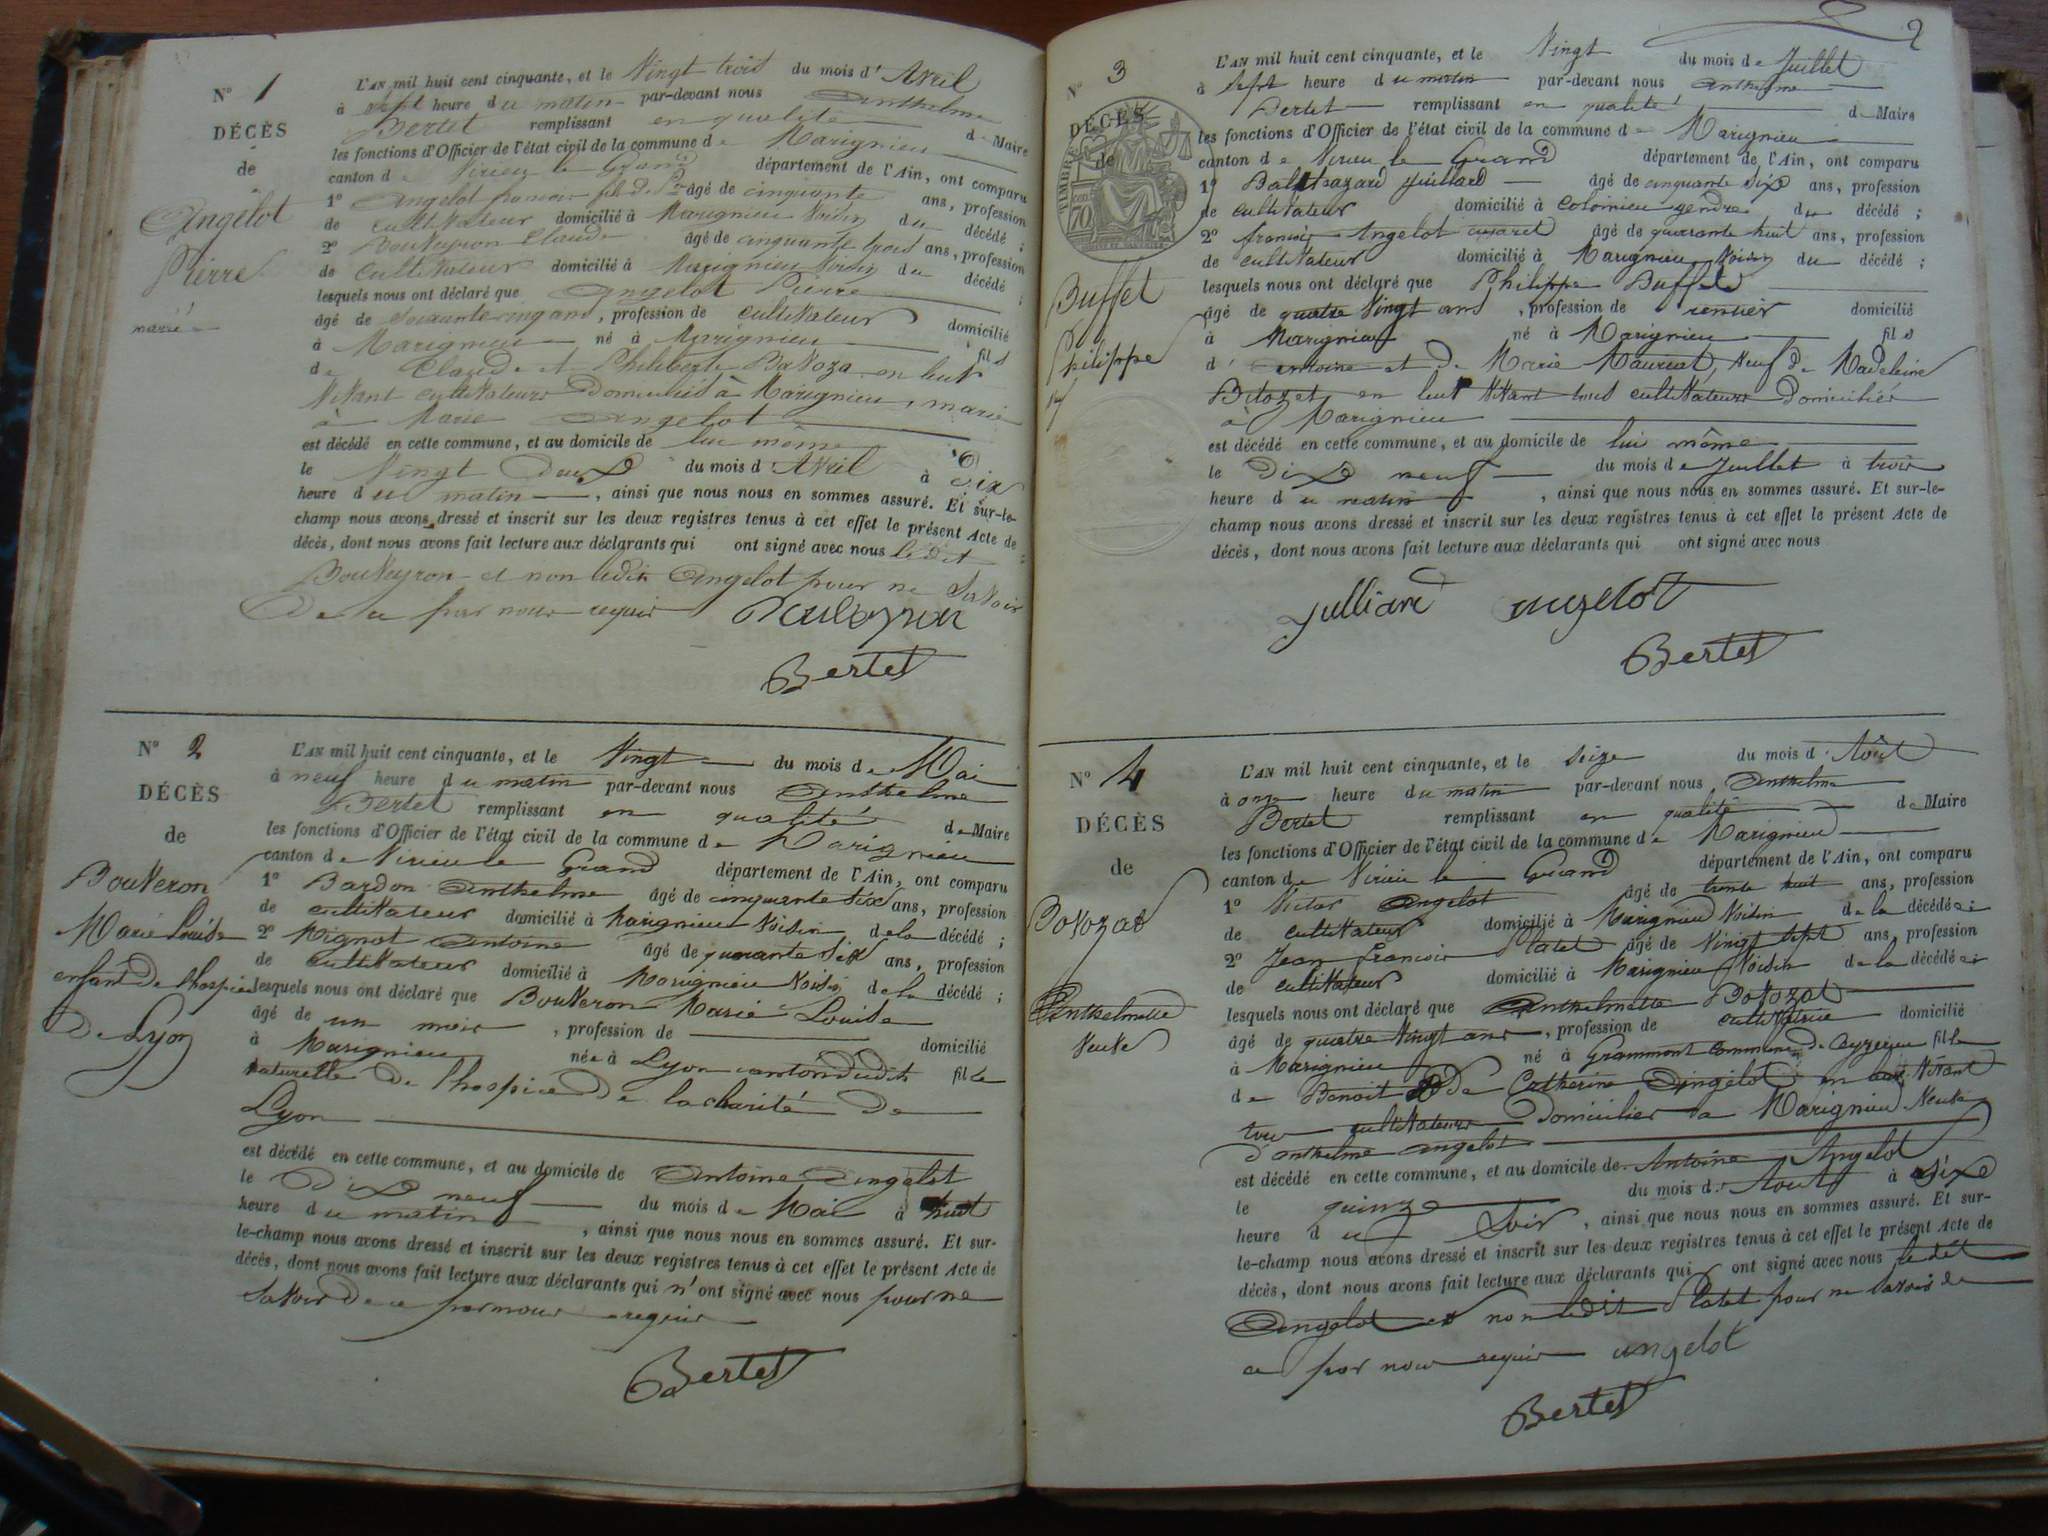 N° 1
DÉCÈS
de
Angelot
Pierre
marié
L'AN mil huit cent cinquante, et le Vingt trois du mois d' Avril
à sept heure du matin par-devant nous Anthelme
Bertet remplissant en qualité de Maire
les fonctions d'Officier de l'état civil de la commune de Marignieu
canton de Virieu le Grand département de l'Ain, ont comparu
1° Angelot francois fils de âgé de cinquante ans, profession
de cultivateur domicilié à Marignieu Voisin du décédé ;
2° Bouveyron Claude âgé de cinquante trois ans, profession
de cultivateur domicilié à Marignieu Voisin du décédé ;
lesquels nous ont déclaré que Angelot Pierre
âgé de soixante cinq ans, profession de cultivateur domicilié
à Marignieu né à Marignieu fils
de Claude et Philiberte Bavoza en leur
Vivant cultivateurs Domiciliés à Marignieu, marié
à Marie Angelot
est décédé en cette commune, et au domicile de lui même
le Vingt Deux du mois d' Avril à Six
heure du matin, ainsi que nous nous en sommes assuré. Et sur-le-
champ nous avons dressé et inscrit sur les deux registres tenus à cet effet le présent Acte de
décès, dont nous avons fait lecture aux déclarants qui ont signé avec nous ledit
Bouveyron et non ledit Angelot pour ne Savoir
De ce par nous requis Bouveyron
Bertet
N° 2
DÉCÈS
de
Bouveron
Marie Louise
enfant De lhospice
De Lyon
L'AN mil huit cent cinquante, et le Vingt du mois de Mai
à neuf heure du matin par-devant nous Anthelme
Bertet remplissant en qualité de Maire
les fonctions d'Officier de l'état civil de la commune de Marignieu
canton de Virieu le Grand département de l'Ain, ont comparu
1° Bardon Anthelme âgé de cinquante six ans, profession
de cultivateur domicilié à Marignieu Voisin de la décédé ;
2° Mignot Antoine âgé de quarante Six ans, profession
de cultivateur domicilié à Marignieu Voisin de la décédé ;
lesquels nous ont déclaré que Bouveron Marie Louise
âgé de un mois, profession de domicilié
à Marignieu née à Lyon canton dudit fille
naturelle De l'hospice De la charité De
Lyon
est décédé en cette commune, et au domicile de Antoine Angelot
le Dix neuf du mois de Mai à huit
heure du matin, ainsi que nous nous en sommes assuré. Et sur-
le-champ nous avons dressé et inscrit sur les deux registres tenus à cet effet le présent Acte de
décès, dont nous avons fait lecture aux déclarants qui n'ont signé avec nous pour ne
Savoir De ce par nous requis
Bertet
2
N° 3
DÉCÈS
de
TIMBRE
70
Buffet
Philippe
L'AN mil huit cent cinquante, et le Vingt du mois de Juillet
à Sept heure du matin par-devant nous Anthelme
Bertet remplissant en qualité de Maire
les fonctions d'Officier de l'état civil de la commune de Marignieu
canton de Virieu le Grand département de l'Ain, ont comparu
1° Balthazard Juilliard âgé de cinquante six ans, profession
de cultivateur domicilié à colomieu gendre du décédé ;
2° francois Angelot âgé de quarante huit ans, profession
de cultivateur domicilié à Marignieu Voisin du décédé ;
lesquels nous ont déclaré que Philippe Buffet
âgé de quatre Vingt ans, profession de rentier domicilié
à Marignieu né à Marignieu fils
d' Antoine et de Marie Veuf de Madeleine
en leur Vivant tous cultivateurs Domiciliés
à Marignieu
est décédé en cette commune, et au domicile de lui même
le Dix neuf du mois de Juillet à trois
heure du matin, ainsi que nous nous en sommes assuré. Et sur-le-
champ nous avons dressé et inscrit sur les deux registres tenus à cet effet le présent Acte de
décès, dont nous avons fait lecture aux déclarants qui ont signé avec nous
Julliard Angelot
Bertet
N° 4
DÉCÈS
de
Bovozat
Anthelmette
Veuve
L'AN mil huit cent cinquante, et le Seize du mois d' Août
à onze heure du matin par-devant nous Anthelme
Bertet remplissant en qualité de Maire
les fonctions d'Officier de l'état civil de la commune de Marignieu
canton de Virieu le Grand département de l'Ain, ont comparu
1° Victor Angelot âgé de trente huit ans, profession
de cultivateur domicilié à Marignieu Voisin de la décédée ;
2° Jean francois Platet âgé de Vingt Sept ans, profession
de cultivateur domicilié à Marignieu Voisin de la décédée ;
lesquels nous ont déclaré que Anthelmette Bovozat
âgé de quatre Vingt ans, profession de cultivatrice domicilié
à Marignieu né à Grammont commune de Ceyzerieu fille
de Benoit & De Catherine Angelot en leur Vivant
tous cultivateurs Domicilier à Marignieu Veuve
D'anthelme Angelot
est décédé en cette commune, et au domicile de Antoine Angelot
le quinze du mois d' Aout à Six
heure du Soir, ainsi que nous nous en sommes assuré. Et sur-
le-champ nous avons dressé et inscrit sur les deux registres tenus à cet effet le présent Acte de
décès, dont nous avons fait lecture aux déclarants qui ont signé avec nous ledit
Angelot et non ledit Platet pour ne Savoir de
ce par nous requis Angelot
Bertet